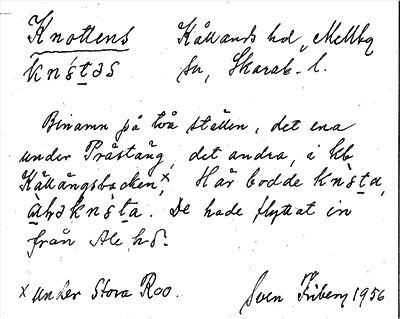 Knottens Kållands hd, Mellby
sn, Skarab. l.
Binamn på två ställen, det ena
under Pråstäng, det andra, i kb
Kållängsbacken,x Här bodde
De hade flyttat in
från Ale hd.
x under Stora Roo. Sven Friberg 1956